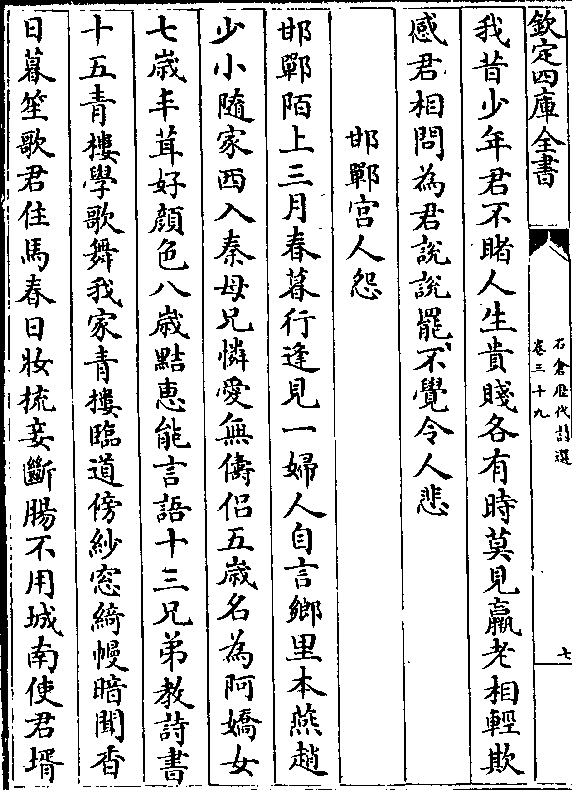 欽定四庫全書
石倉歷代詩選
卷三十九
七
我昔少年君不睹人生貴賤各有時莫見羸老相輕欺
感君相問為君說說罷不覺令人悲
邯鄲宮人怨
邯鄲陌上三月春暮行逢見一婦人自言鄉里本燕趙
少小隨家西入秦母兄憐愛無儔侣五歳名為阿嬌女
七歳丰茸好顔色八歳點惠能言語十三兄弟教詩書
十五青樓學歌舞我家青樓臨道傍紗窓綺幔暗聞香
日暮笙歌君住馬春日妝梳妾斷腸不用城南使君壻